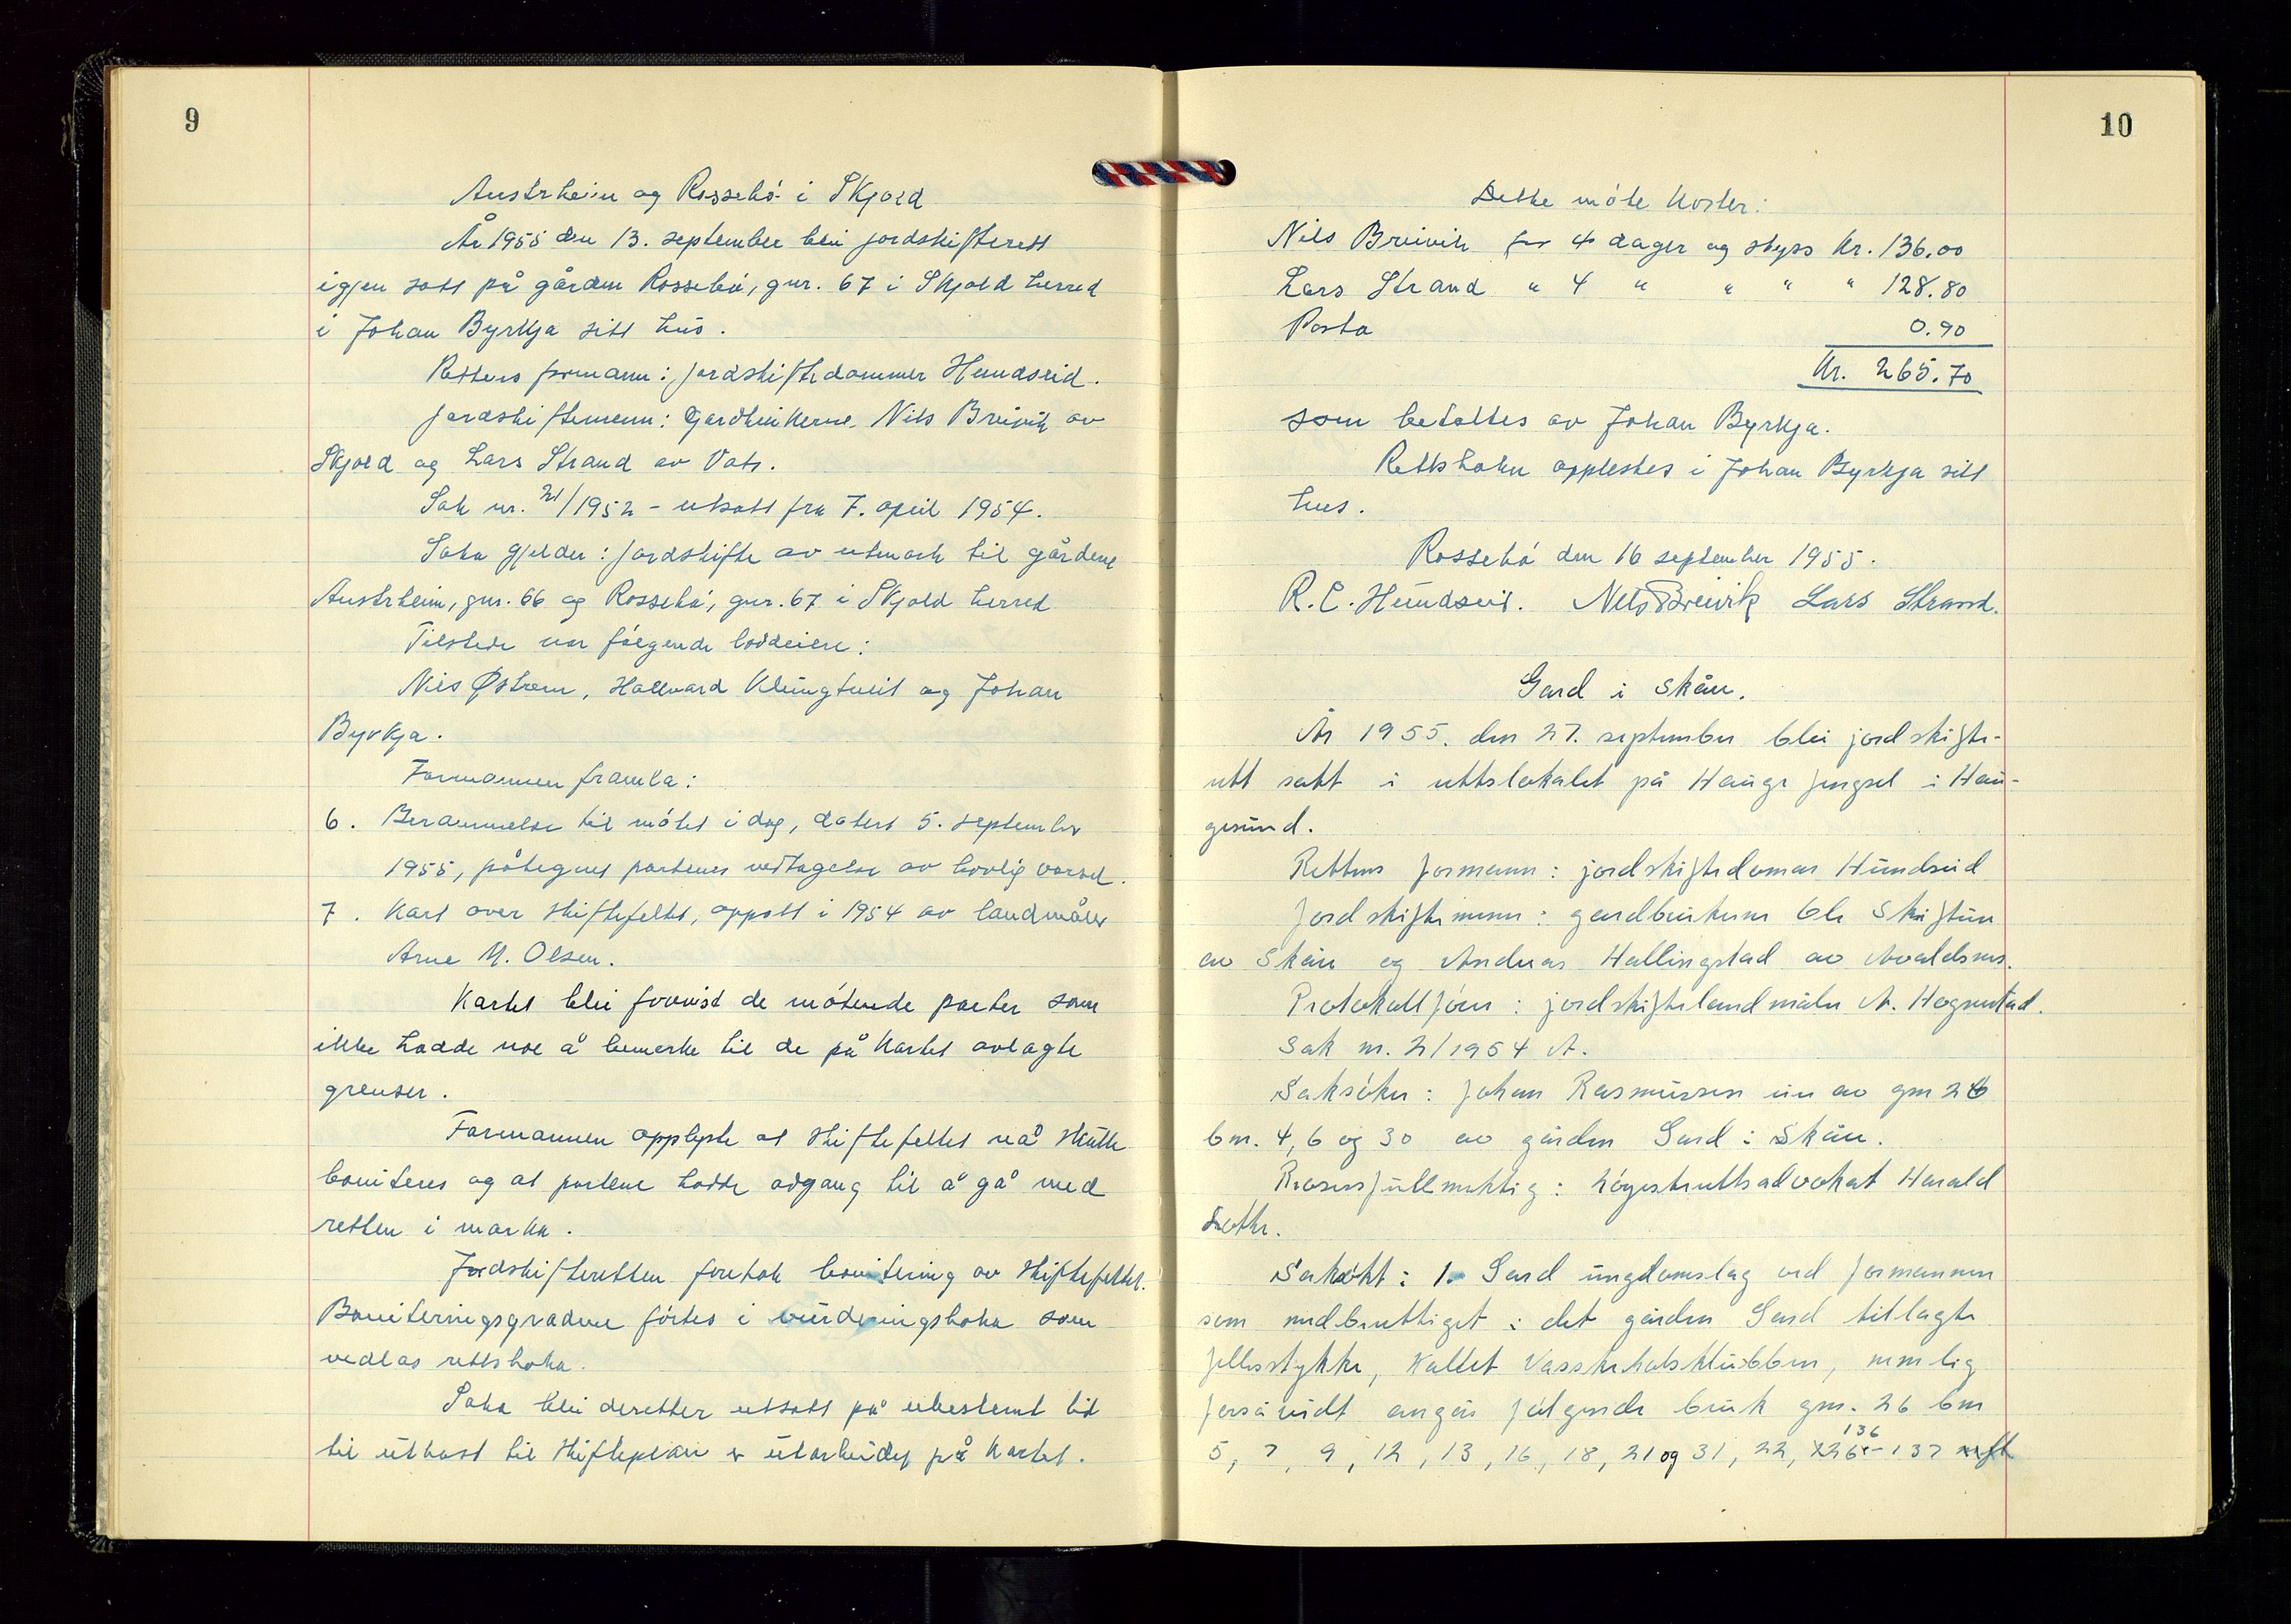 9
Austrheim og Rossebó i Skjold
År 1955 den 13. september blei jordskifterett
igjen satt på gården Rossebó, gnr. 67 i Skjold herred
i Johan Byrkja sitt hus.
Rettens formann: jordskiftedommer Hundseid.
Jordskiftemenn: Gardbrukerne Nils Breivik av
Skjold og Lars Strand av Vats.
Sak nr. 21/1952 - utsatt fra 7. april 1954.
Saka gjelder: jordskifte av utmark til gårdene
Austrheim, gnr. 66 og Rossebó, gnr. 67 i Skjold herred
Tilstede var fólgende loddeiere:
Nils Østrem, Hallvard Klungtveit og Johan
Byrkja.
Formannen framla:
6. Berammelse til mótet i dag, datert 5. september
1955, påtegnet partenes vedtagelse av lovlig varsel.
7. Kart over skiftefeltet, oppsatt i 1954 av landmåler
Arne M. Olsen.
Kartet blei forevist de mótende parter som
ikke hadde noe å bemerke til de på kartet avlagte
grenser.
Formannen opplyste at skiftefeltet nå skulle
boniteres og at partene hadde adgang til å gå med
retten i marka.
Jordskifteretten foretok bonitering av skiftefeltet.
Boniteringsgradene fórtes i vurderingsboka som
vedlas rettsboka.
Saka blei deretter utsatt på ubestemt tid
til utkast til skifteplan er utarbeidet på kartet.
10
Dette móte koster:
Nils Breivik for 4 dager og skyss kr. 136.00
Lars Strand " 4 " " " " 128.80
Porto 0.90
Kr. 265.70
som betaltes av Johan Byrkja.
Rettsboka opplestes i Johan Byrkja sitt
hus.
Rossebó den 16 september 1955.
R. C. Hundseid. Nils Breivik Lars Strand.
Gard i Skåre.
År 1955. den 27. september blei jordskifte-
rett satt i rettslokalet på Hauge fengsel i Hau-
gesund.
Rettens formann: jordskiftedomar Hundseid
Jordskiftemenn: gardbrukerne Ole Skeistun
av Skåre og Andreas Hallingstad av Avaldsnes.
Protokollfórer: jordskiftelandmåler A. Hognestad.
Sak nr. 2/1954 A.
Saksóker: Johan Rasmussen eier av gnr 26
bnr. 4, 6 og 30 av gården Gard i Skåre.
Prosessfullmektig: hógesterettsadvokat Harald
Sóthe.
Saksókt: 1. Gard ungdomslag ved formannen
som medberettiget i det gården Gard tillagte
fellesstykke, kallet Vasskehalsklubben, nemlig
forsåvidt angår fólgende bruk gnr. 26 bnr
136
5, 7, 9, 12, 13, 16, 18, 21 og 31, 22, 126 - 137